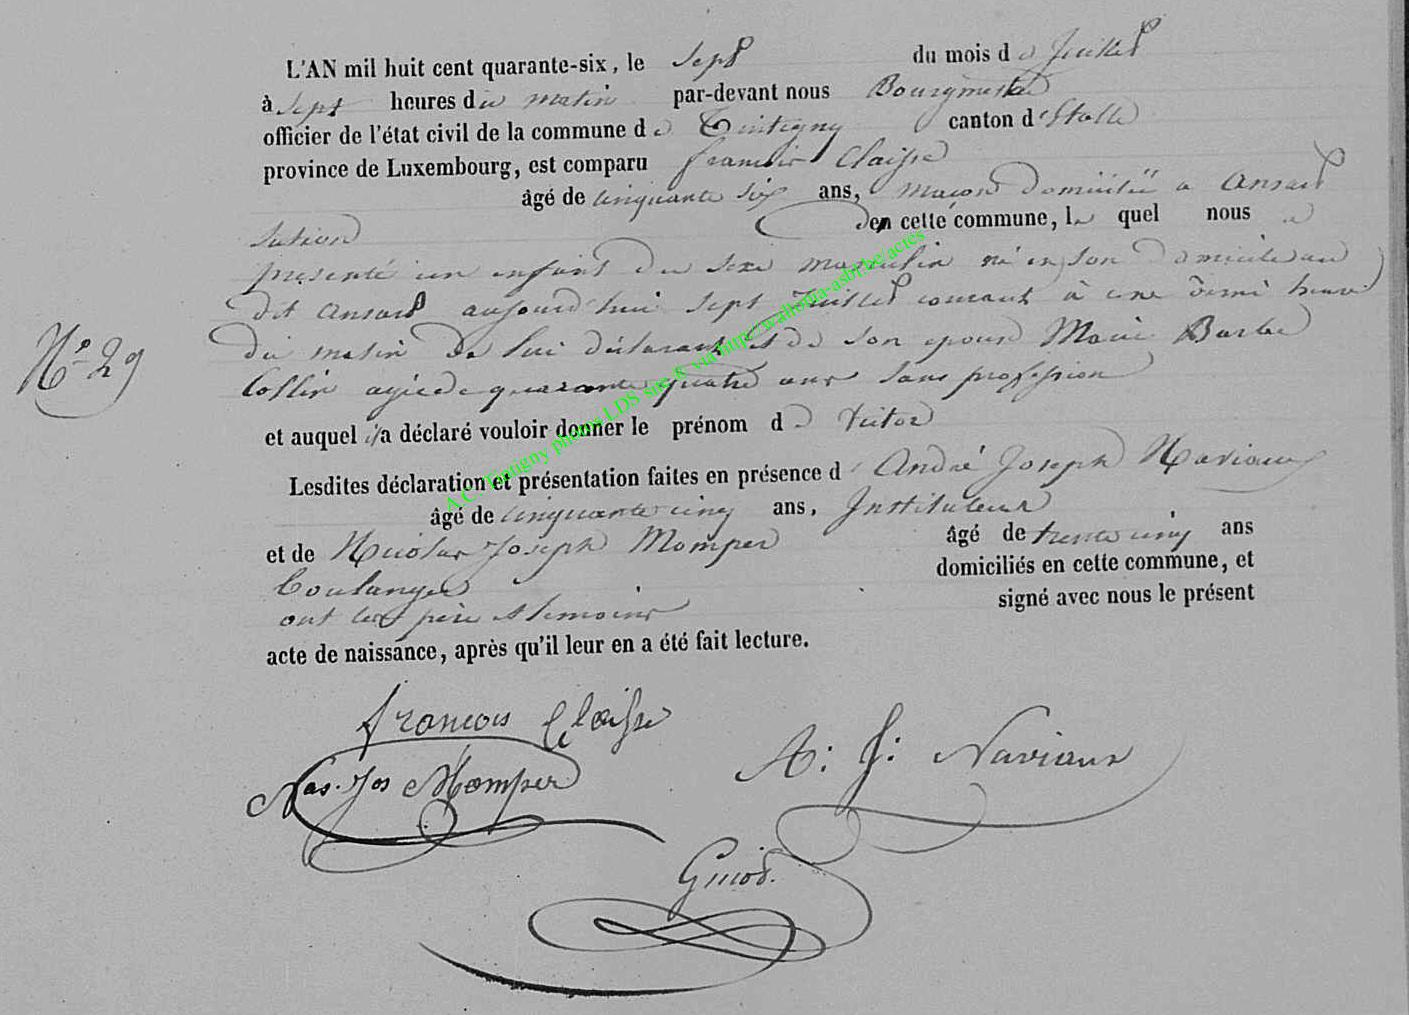 L'AN mil huit cent quarante-six, le Sept du mois de Juillet
à Sept heures du matin par-devant nous Bourgmestre
officier de l'état civil de la commune de Tintigny canton d'Etalle
province de Luxembourg, est comparu francois Claisse
âgé de cinquante six ans, maçon domicilié a Ansart
section den cette commune, le quel nous a
présenté un enfant du sexe masculin né en son domicile au
dit Ansart aujourd'hui sept Juillet courant à une demi heure
du matin de lui déclarant et de son epouse Marie Barbe
Collin agée de quarante quatre ans sans profession
N° 29
et auquel il a déclaré vouloir donner le prénom de Victor
Lesdites déclaration et présentation faites en présence d'André Joseph Naviaux
âgé de cinquante cinq ans, Instituteur
et de Nicolas Joseph Momper âgé de trente cinq ans
Boulanger domiciliés en cette commune, et
ont les père et temoins signé avec nous le présent
acte de naissance, après qu'il leur en a été fait lecture.
francois Claisse
Nas. Jos Momper A: J: Naviaux
A.C. Tintigny photos LDS via http://wallonia-asbl.be/actes